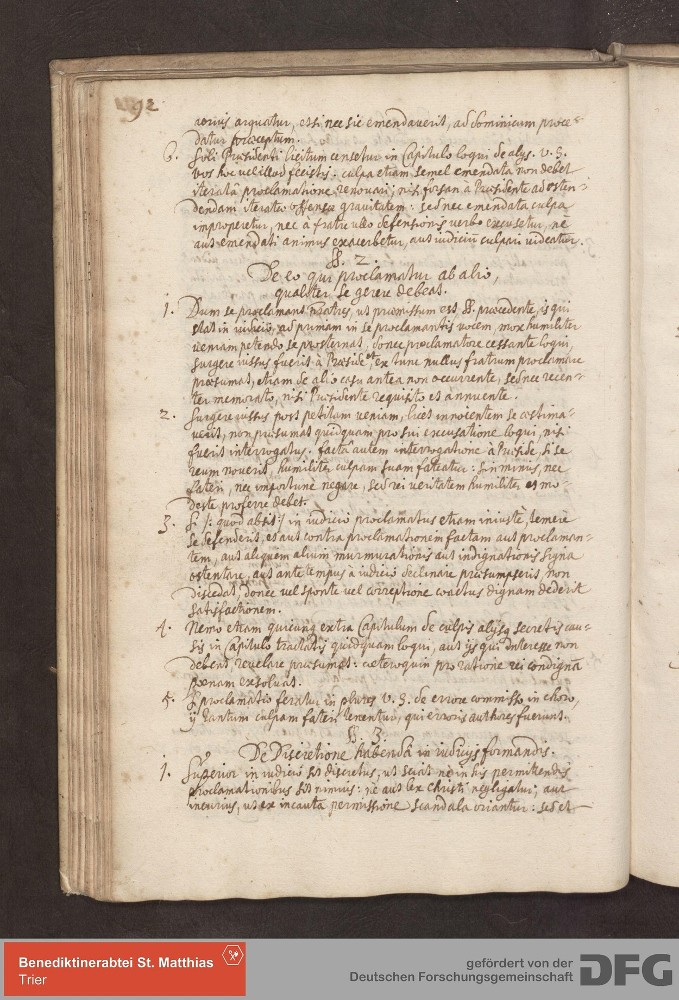 92
acrius arguatur, et si nec sic emendaverit, ad dominicum proce-
datur praeceptum.
6. Soli Praesidenti licitum censetur in Capitulo loqui de alijs. v. g.
vos hoc vel illud fecistis: culpa etiam semel emendata non debet
iteratâ proclamatione renovari; nisi forsan à Praesidente ad osten-
dendam iteratae offensae gravitatem: sed nec emendata culpa
improperetur, nec à fratre ullo defensionis verbo excusetur, nè
aut emendati animus exacerbetur, aut iudicium culpari videatur.
§. 2.
De eo qui proclamatur ab alio,
qualiter se gerere debeat.
1. Dum se proclamant Fratres, ut praemissum est §. praecedente, is qui
stat in iudicio, ad primam in se proclamantis vocem, mox humiliter
veniam petendo se prosternat, donec proclamatore cessante loqui,
surgere iussus fuerit à Praeside et ex tunc nullus fratrum proclamare
praesumat, etiam de alio casu antea non occurrente, sed nec recen-
ter memorato, nisi Praesidente requisito et annuente.
2. Surgere iussus post petitam veniam, licet innocentem se aestima-
verit, non praesumat quidquam pro sui excusatione loqui, nisi
fuerit interrogatus. factâ autem interrogatione à Praeside, si se
reum noverit, humiliter culpam suam fateatur: sin minus, nec
fateri, nec importunè negare, sed rei veritatem humiliter et mo-
deste proferre debet.
3. Si /: quod absit :/ in iudicio proclamatus etiam iniustè, temere
se defenderit, et aut contra proclamationem factam aut proclaman-
tem, aut aliquem alium murmurationis aut indignationis signa
ostentare, aut ante tempus à iudicio declinare praesumpserit, non
discedat, donec vel sponte vel correptione coactus dignam dederit
satisfactionem.
4. Nemo etiam quicunq extra Capitulum de culpis alijsq secretis cau-
sis in Capitulo tractatis quidquam loqui, aut ijs qui interesse non
debent, revelare praesumat: caeteroquin pro ratione rei condignâ
poenam exsolvat.
5. Si proclamatio feratur in plures v. g. de errore commisso in choro,
ij tantum culpam fateri tenentur, qui erroris authores fuerunt.
§. 3.
De Discretione habendâ in iudicijs formandis.
1. Superior in iudicio sit discretus, ut sciat nè in his permittendis
proclamationibus sit nimius: nè aut lex Christi negligatur; aut
incurius, ut ex incauta permissione scandala oriantur: sed et
Benediktinerabtei St. Matthias
Trier
gefördert von der
Deutschen Forschungsgemeinschaft
DFG